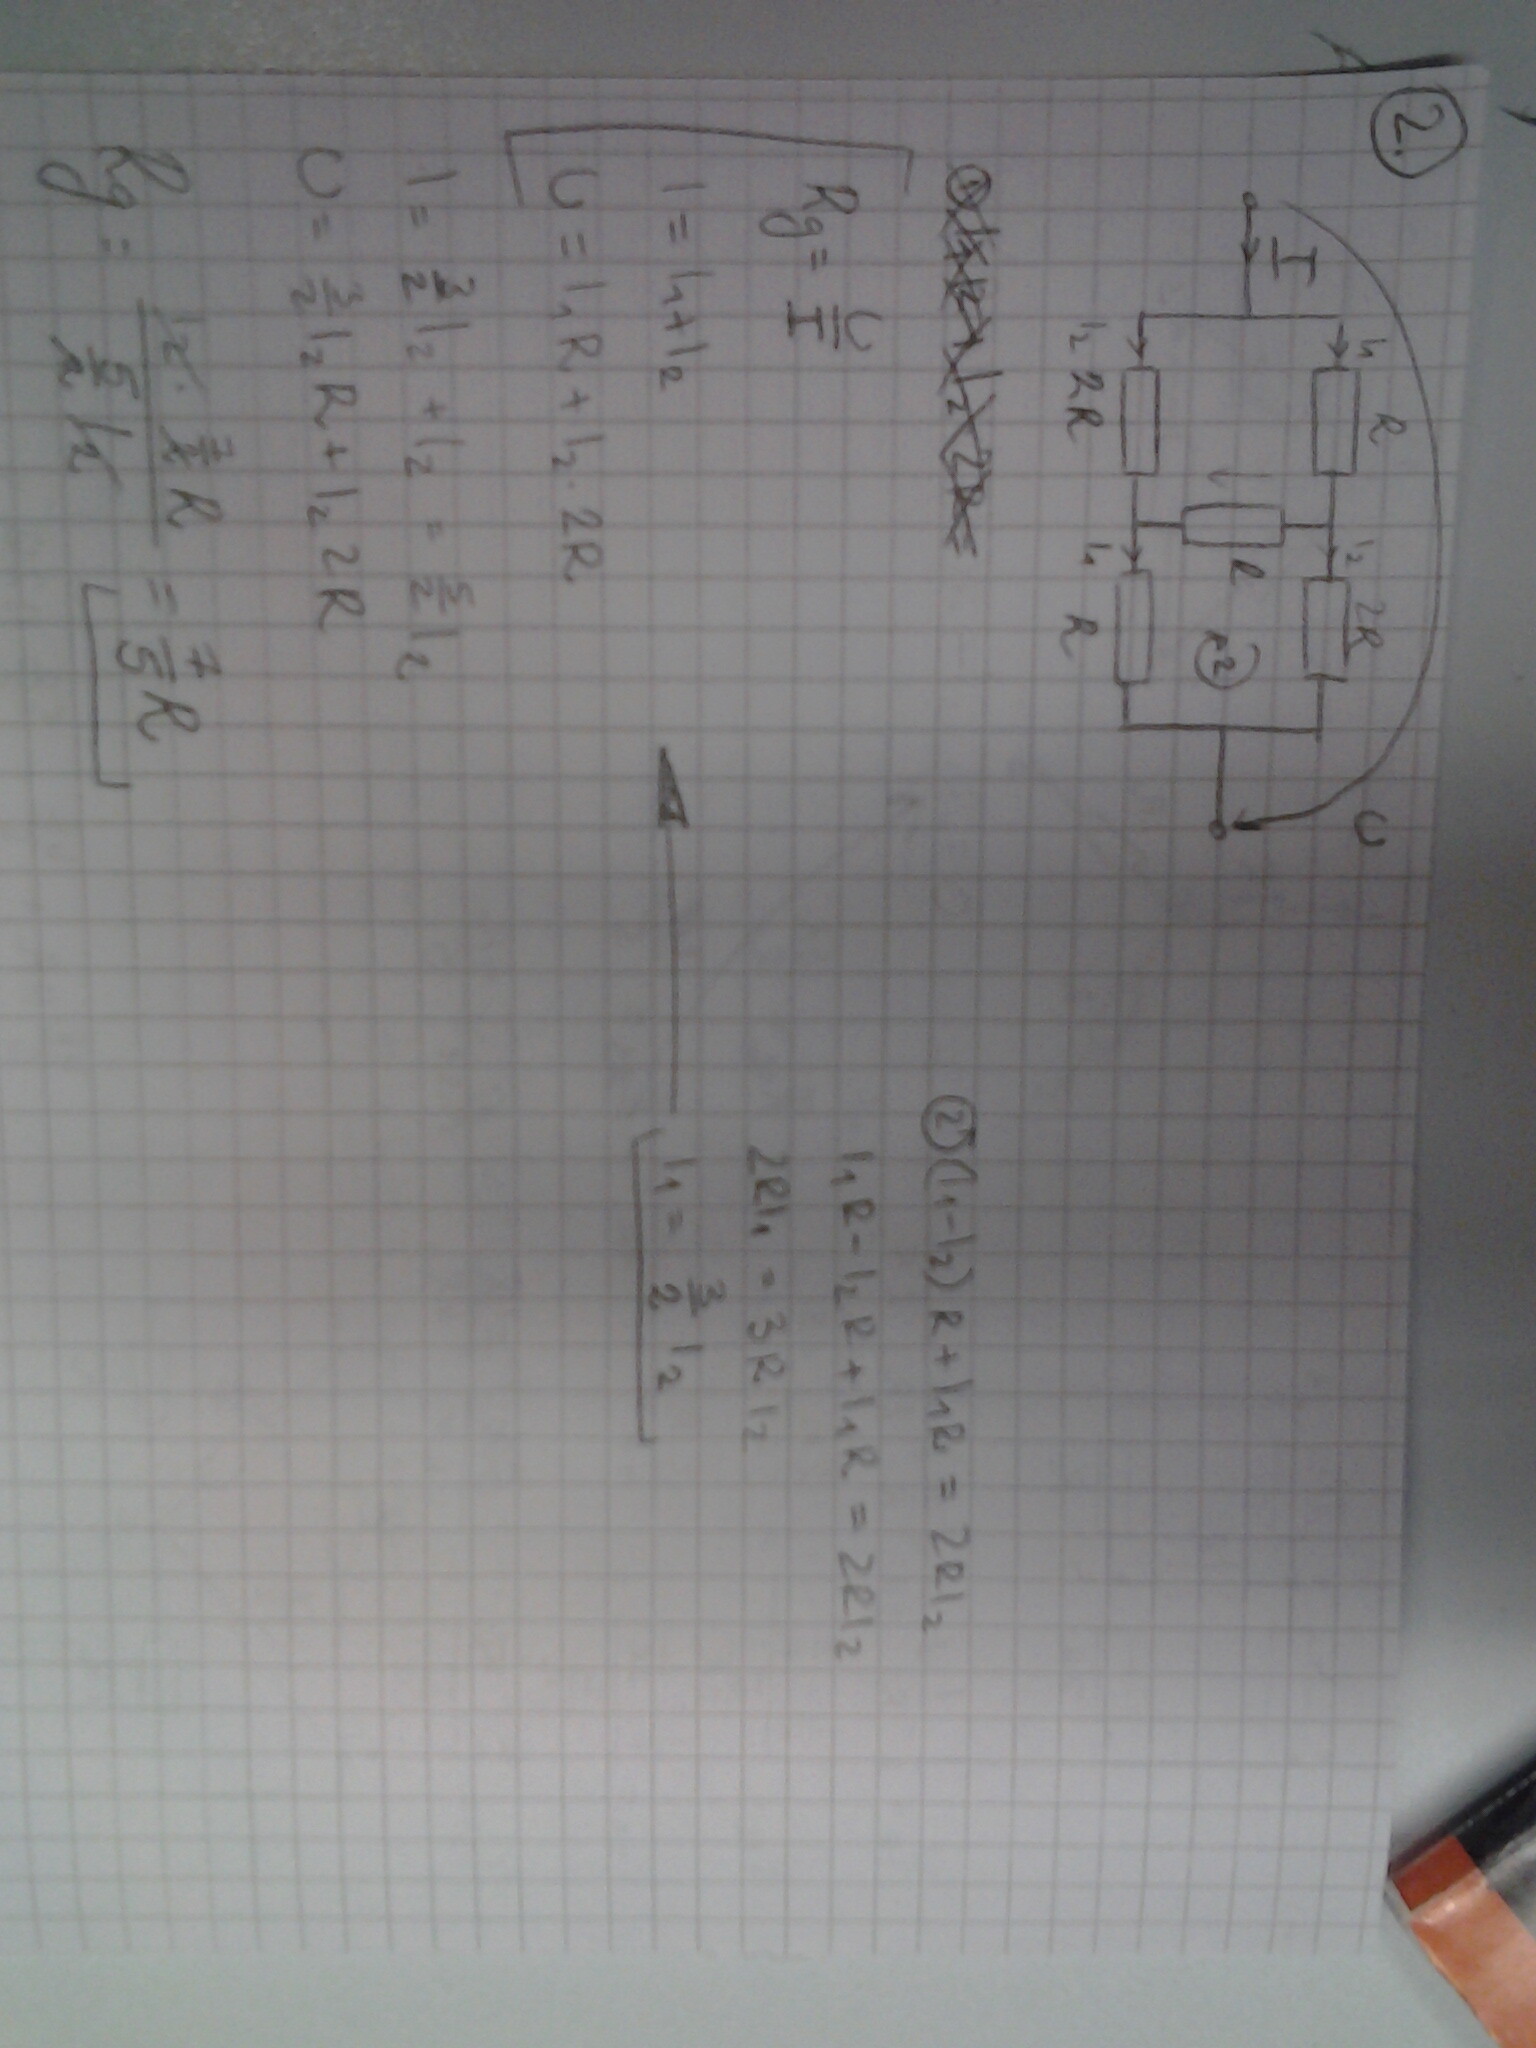 2.
I
U
I₁ R
I₂ 2R
I₂ 2R
R
I₁ R
2
① I₁R + I₂ 2R =
Rg = U/I
I = I₁ + I₂
U = I₁R + I₂ · 2R
I = 3/2 I₂ + I₂ = 5/2 I₂
U = 3/2 I₂ R + I₂ 2R
Rg = (I₂ · 7/2 R)/(5/2 I₂) = 7/5 R
② (I₁ - I₂) R + I₁R = 2RI₂
I₁R - I₂R + I₁R = 2RI₂
2RI₁ = 3RI₂
I₁ = 3/2 I₂